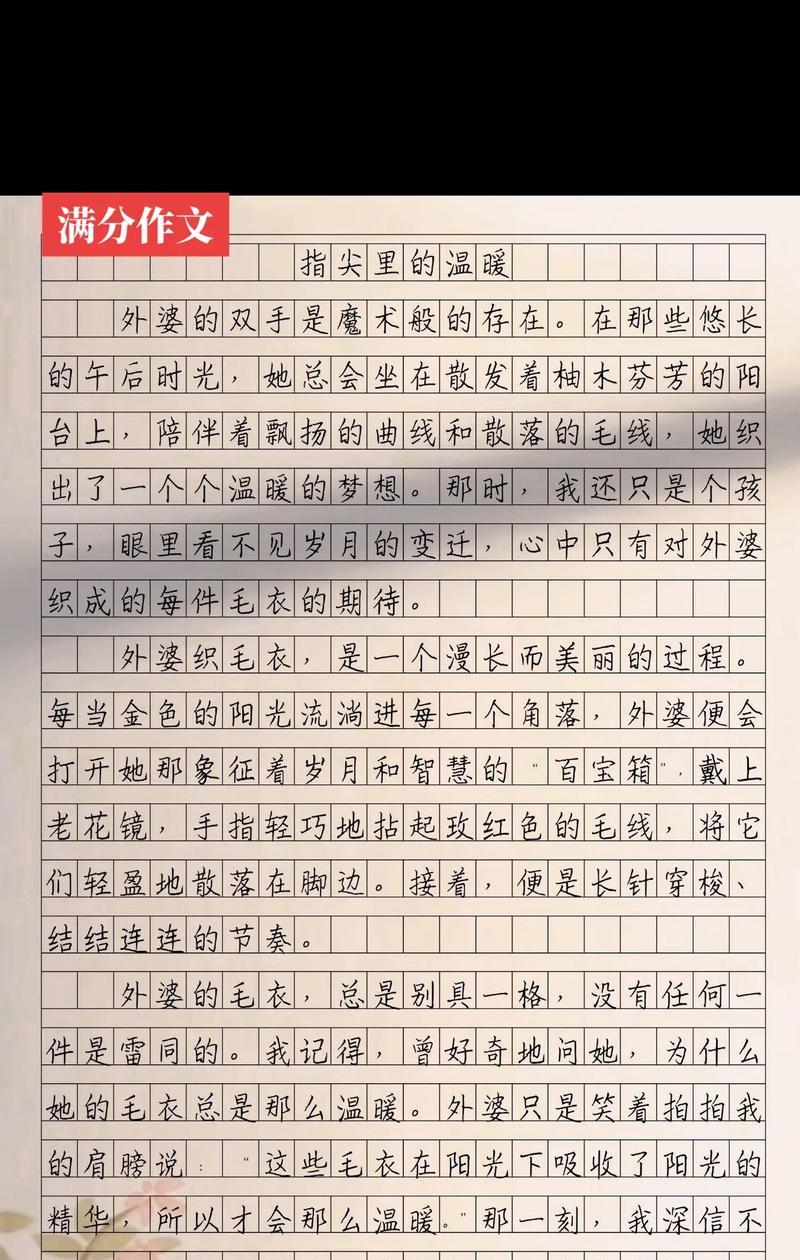 满分作文
指尖里的温暖
外婆的双手是魔术般的存在。在那些悠长
的午后时光，她总会坐在散发着柚木芬芳的阳
台上，陪伴着飘扬的曲线和散落的毛线，她织
出了一个个温暖的梦想。那时，我还只是个孩
子，眼里看不见岁月的变迁，心中只有对外婆
织成的每件毛衣的期待。
外婆织毛衣，是一个漫长而美丽的过程。
每当金色的阳光流淌进每一个角落，外婆便会
打开她那象征着岁月和智慧的“百宝箱”，戴上
老花镜，手指轻巧地拈起玫红色的毛线，将它
们轻盈地散落在脚边。接着，便是长针穿梭、
结结连连的节奏。
外婆的毛衣，总是别具一格，没有任何一
件是雷同的。我记得，曾好奇地问她，为什么
她的毛衣总是那么温暖。外婆只是笑着拍拍我
的肩膀说：“这些毛衣在阳光下吸收了阳光的
精华，所以才会那么温暖。”那一刻，我深信不